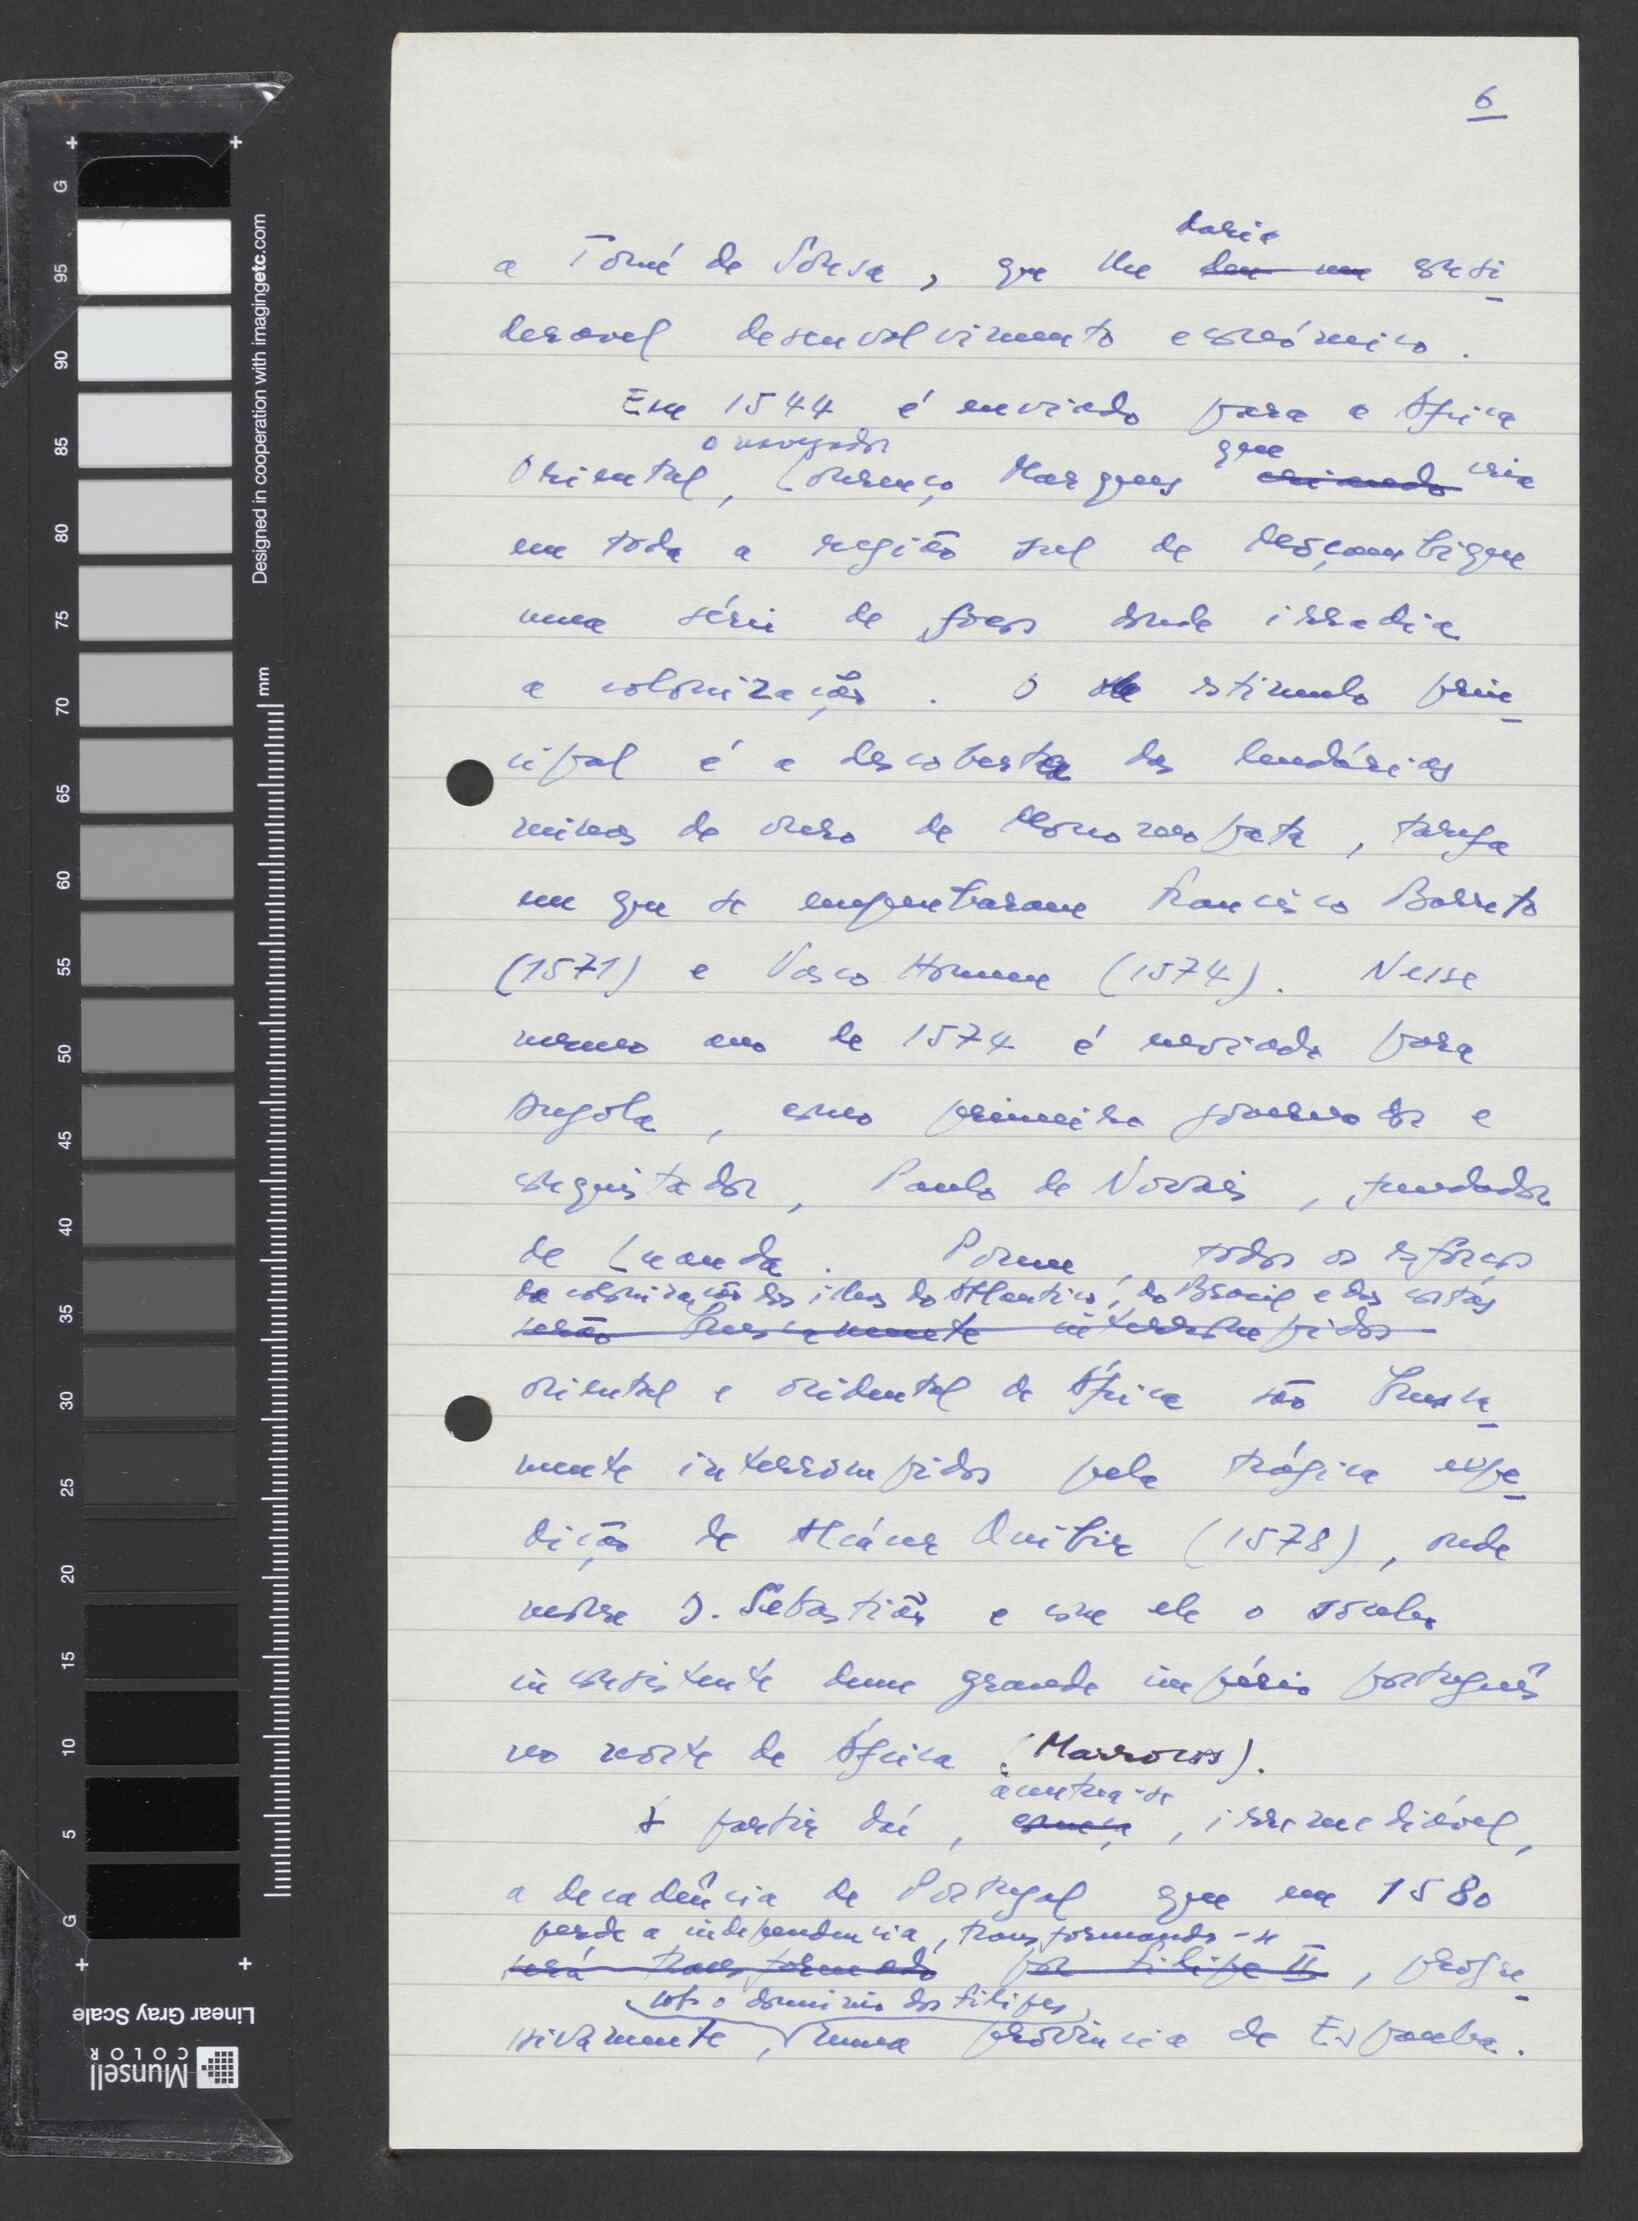 6
daria
a Tomé de Sousa, que lhe deu um consi
deravel desenvolvimento económico.
Em 1544 é enviado para a África
o navegador
que
Oriental, Lourenço Marques criando cria
em toda a região sul de Moçambique
uma série de focos donde irradia
a colonização. O estimulo prin
cipal é a descoberta das lendárias
minas de ouro de Monomotapa, tarefa
em que se empenharam Francisco Barreto
(1571) e Vasco Homem (1574). Nesse
mesmo ano de 1574 é enviado para
Angola, como primeiro governador e
conquistador, Paulo de Novais, fundador
de Luanda. Porem, todos os esforços
de colonização das ilhas do Atlantico, do Brasil e das costas
serão bruscamente interrompidos
oriental e ocidental de África são brusca
mente interrompidos pela trágica expe
dição de Alcácer Quibir (1578), onde
morre D. Sebastião e com ele o sonho
inconsistente dum grande império português
no norte de África (Marrocos).
acentua-se
A partir daí, começa, irremediável,
a decadência de Portugal que em 1580
perde a independencia, transformando-se
será transformado por Filipe II, progre
sob o dominio dos Filipes,
sivamente, numa província de Espanha.
Designed in cooperation with imagingetc.com
mm
G
95
90
85
80
75
70
65
60
55
50
45
40
35
30
25
20
15
10
5
G
Linear Gray Scale
Munsell
COLOR